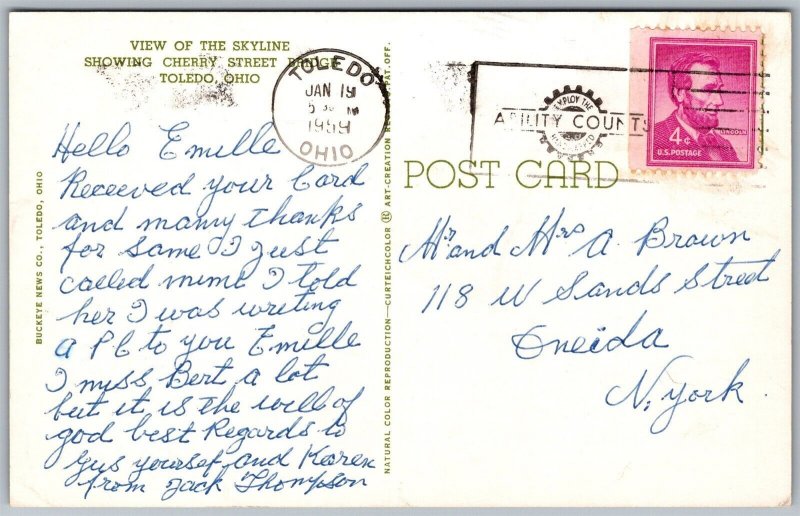 VIEW OF THE SKYLINE
SHOWING CHERRY STREET BRIDGE
TOLEDO, OHIO
Hello Emille
Received your Card
and many thanks
for same I just
called mime I told
her I was writing
a P C to you Emille
I miss Bert a lot
but it is the will of
god best Regards to
Gus yourself and Karen
from Jack Thompson
BUCKEYE NEWS CO., TOLEDO, OHIO
NATURAL COLOR REPRODUCTION—CURTEICHCOLOR ® ART-CREATION REG. U.S. PAT. OFF.
TOLEDO
JAN 19
1959
OHIO
EMPLOY THE
ABILITY COUNTS
4¢
LINCOLN
U.S. POSTAGE
POST CARD
Mr and Mrs A. Brown
118 W Sands Street
Oneida
N. york.